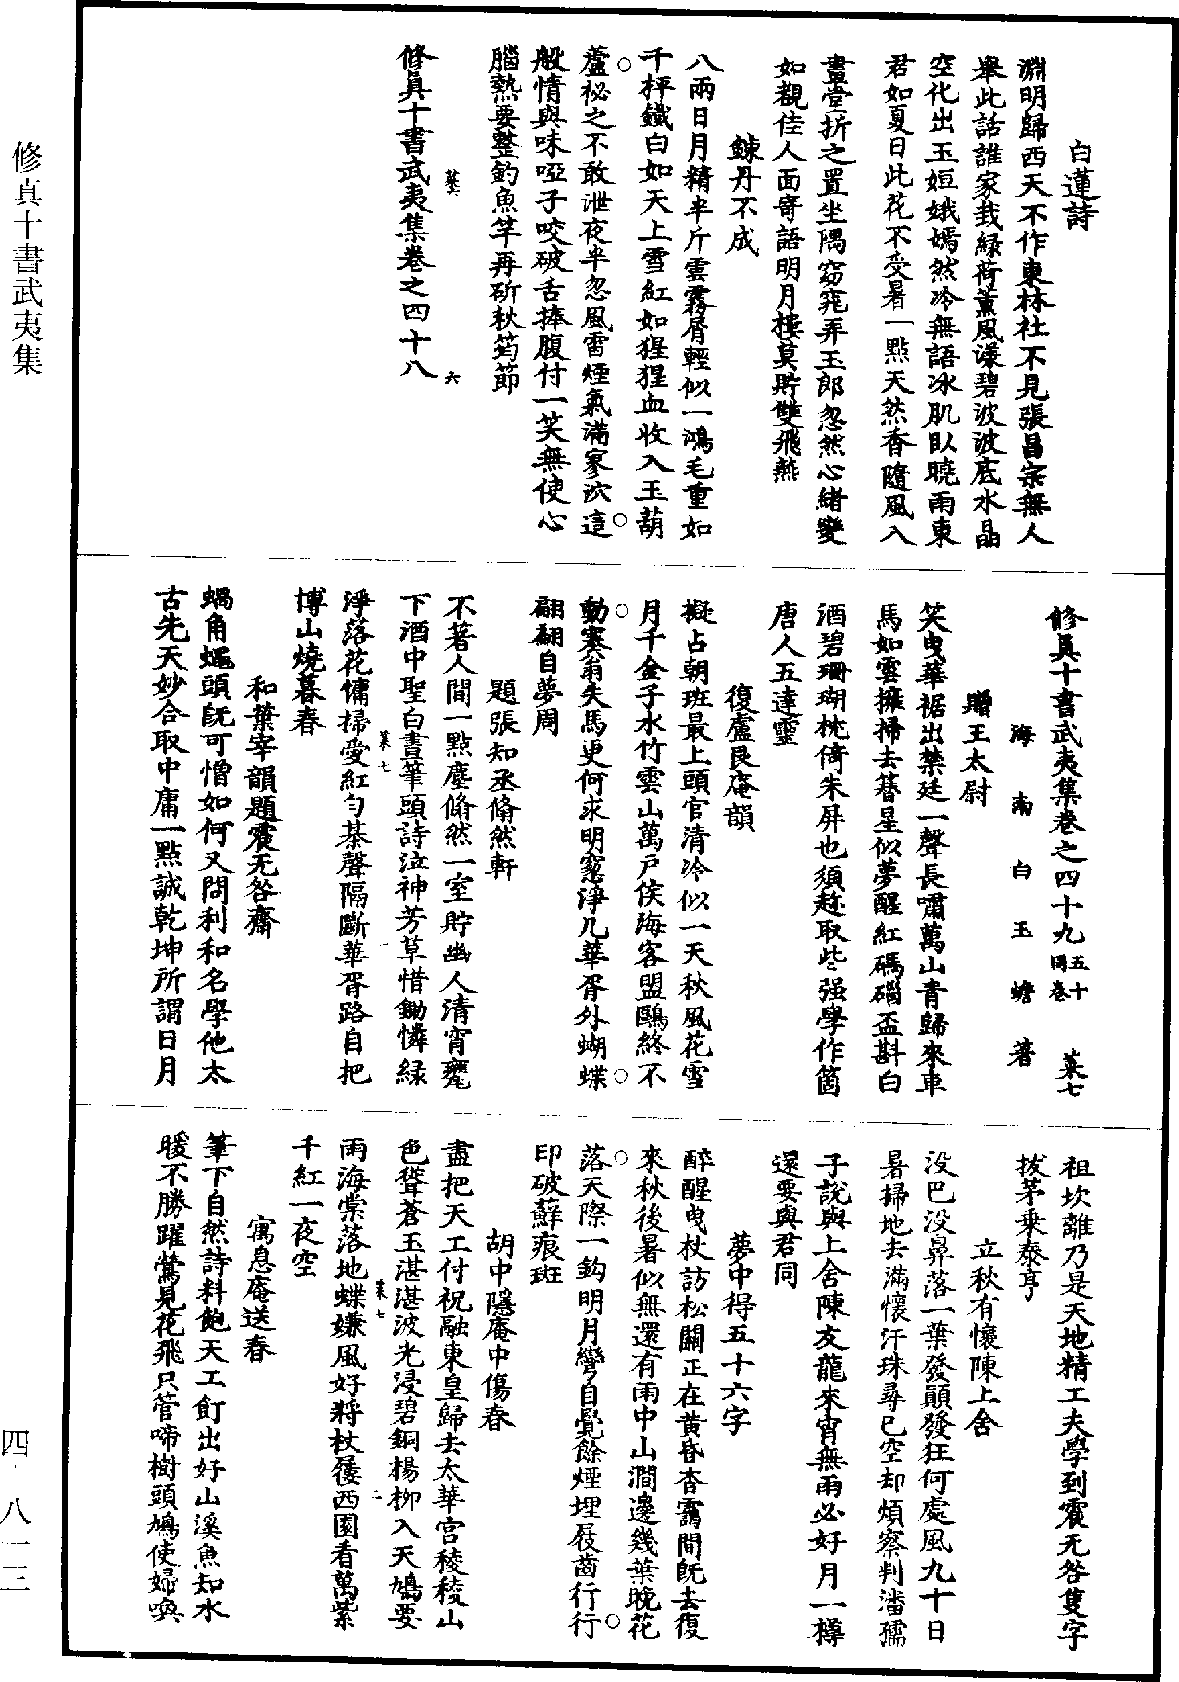 白蓮詩
淵明歸西天不作東林社不見張昌宗無人
舉此話誰家栽綠荷薰風漾碧波波底水晶
空化出玉姮娥嫣然冷無語冰肌臥曉雨東
君如夏日此花不受暑一點天然香隨風入
畫堂折之置坐隅窈窕弄玉郎忽然心緒變
如觀佳人面寄語明月樓莫貯雙飛燕
鍊丹不成
八兩日月精半斤雲霧屑輕似一鴻毛重如
千秤鐵白如天上雪紅如猩猩血收入玉葫
蘆祕之不敢泄夜半忽風雷煙氣滿寥泬這
般情與味啞子咬破舌捧腹付一笑無使心
腦熱要整釣魚竿再斫秋筠節
六
修真十書武夷集卷之四十八
修真十書武夷集卷之四十九 五十同卷 菜七
海南白玉蟾著
贈王太尉
笑曳華裾出禁廷一聲長嘯萬山青歸來車
馬如雲擁掃去簪星似夢醒紅碼碯盃斟白
酒碧珊瑚枕倚朱屏也須趂取些強學作箇
唐人五達靈
復盧艮庵韻
擬占朝班最上頭官清冷似一天秋風花雪
月千金子水竹雲山萬戶侯海客盟鷗終不
動塞翁失馬更何求明窻淨几華胥外蝴蝶
翩翩自夢周
題張知丞翛然軒
不著人間一點塵翛然一室貯幽人清宵甕
下酒中聖白晝筆頭詩泣神芳草惜鋤憐綠
菜七
淨落花傭掃愛紅勻棊聲隔斷華胥路自把
博山燒暮春
和葉宰韻題霍无咎齋
蝸角蠅頭旣可憎如何又問利和名學他太
古先天妙合取中庸一點誠乾坤所謂日月
祖坎離乃是天地精工夫學到霍无咎隻字
拔茅乗泰亨
立秋有懷陳上舍
没巴没鼻落一葉發顚發狂何處風九十日
暑掃地去滿懷汗珠尋已空却煩察判潘孺
子說與上舍陳友龍來宵無雨必好月一樽
還要與君同
夢中得五十六字
醉醒曳杖訪松關正在黃昏杳靄間旣去復
來秋後暑似無還有雨中山澗邊幾葉晚花
落天際一鈎明月彎自覺餘煙埋屐齒行行
印破蘚痕斑
胡中隱庵中傷春
盡把天工付祝融東皇歸去太華宮稜稜山
色聳蒼玉湛湛波光浸碧銅楊柳入天鳩要
菜七 二
雨海棠落地蝶嫌風好將杖屨西園看萬紫
千紅一夜空
寓息庵送春
筆下自然詩料飽天工飣出好山溪魚知水
暖不勝躍鶯見花飛只管啼樹頭鳩使婦喚
修真十書武夷集
四·八一三